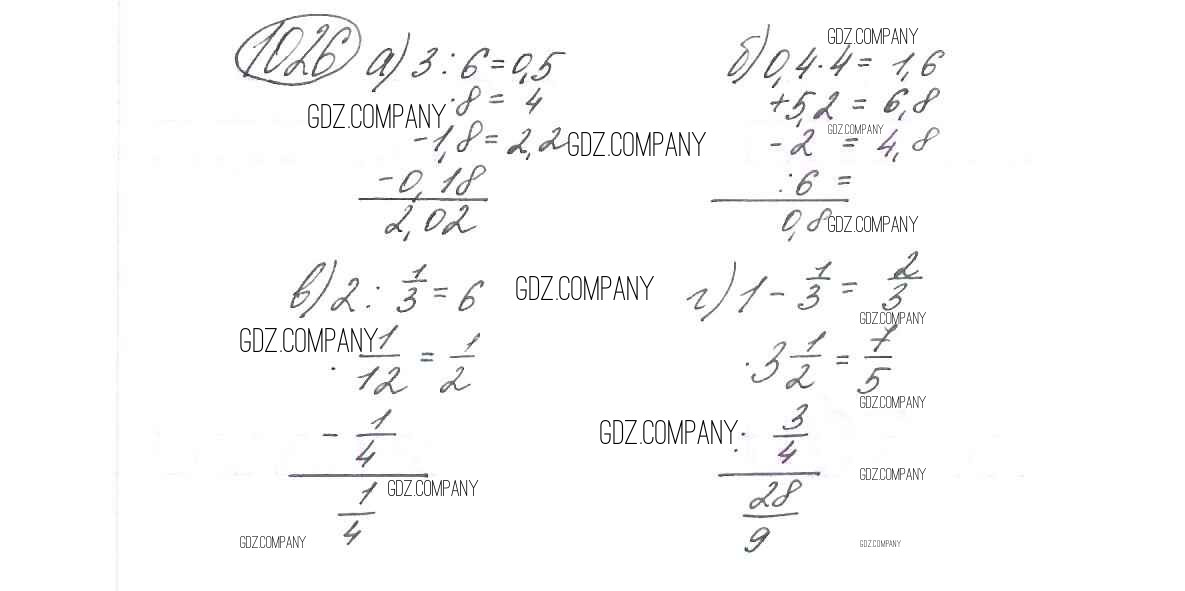 1026 а) 3 : 6 = 0,5
· 8 = 4
- 1,8 = 2,2
- 0,18
2,02
б) 0,4 · 4 = 1,6
+ 5,2 = 6,8
- 2 = 4,8
: 6 =
0,8
в) 2 : 1/3 = 6
· 1/12 = 1/2
- 1/4
1/4
г) 1 - 1/3 = 2/3
· 3 1/2 = 7/5
: 3/4
28/9
GDZ.COMPANY
GDZ.COMPANY
GDZ.COMPANY
GDZ.COMPANY
GDZ.COMPANY
GDZ.COMPANY
GDZ.COMPANY
GDZ.COMPANY
GDZ.COMPANY
GDZ.COMPANY
GDZ.COMPANY
GDZ.COMPANY
GDZ.COMPANY
GDZ.COMPANY